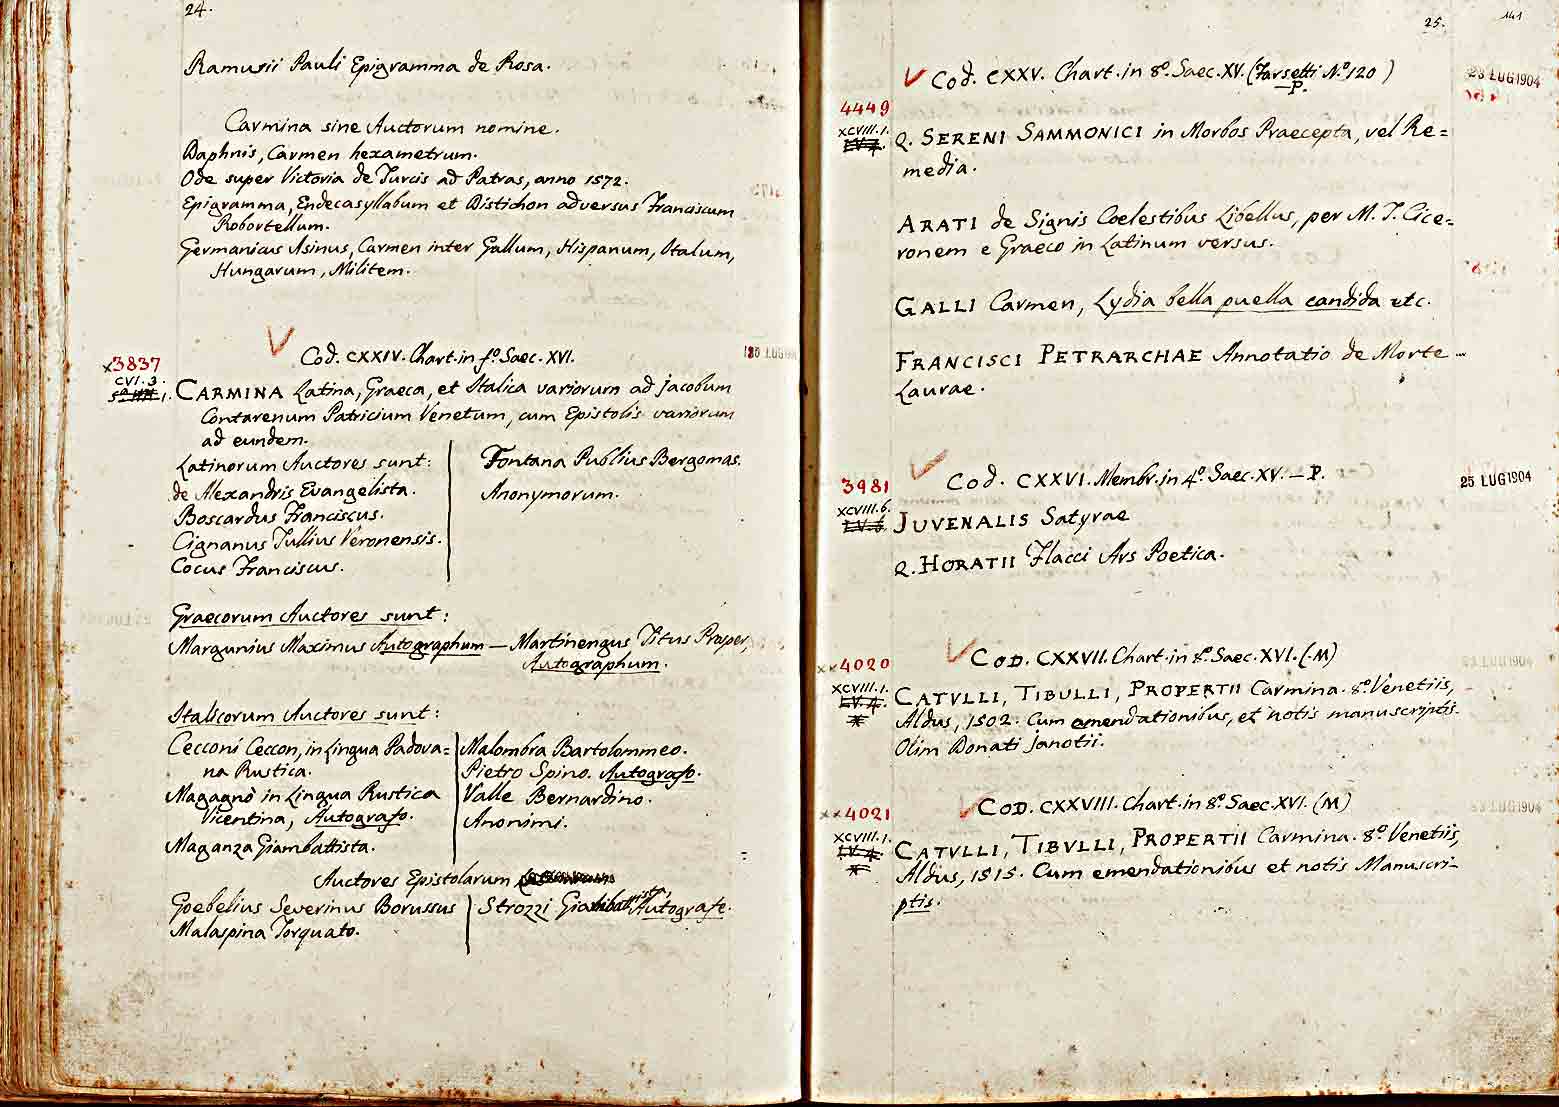 24.
Ramusii Pauli Epigramma de Rosa.
Carmina sine Auctorum nomine.
Daphnis, Carmen hexametrum.
Ode super Victoria de Turcis ad Patras, anno 1572.
Epigramma, Endecasyllabum et Distichon adversus Franciscum
Robortellum.
Germanicus Asinus, Carmen inter Gallum, Hispanum, Italum,
Hungarum, Militem.
Cod. CXXIV. Chart. in fo. Saec. XVI.
x3837
CVI. 3.
CARMINA Latina, Graeca, et Italica variorum ad Jacobum
Contarenum Patricium Venetum, cum Epistolis variorum
ad eundem.
Latinorum Auctores sunt:
de Alexandris Evangelista.
Boscardus Franciscus.
Cignanus Tullius Veronensis.
Cocus Franciscus.
Fontana Publius Bergomas.
Anonymorum.
Graecorum Auctores sunt:
Margunius Maximus Autographum — Martinengus Titus Prosper,
Autographum.
Italicorum Auctores sunt:
Cecconi Ceccon, in Lingua Padova=
na Rustica.
Magagnò in Lingua Rustica
Vicentina, Autografo.
Maganza Giambattista.
Malombra Bartolommeo.
Pietro Spino. Autografo.
Valle Bernardino.
Anonimi.
Auctores Epistolarum
Goebelius Severinus Borussus
Malaspina Torquato.
Strozzi Giambattista, Autografe.
25.
141
Cod. CXXV. Chart. in 8o. Saec. XV. (Farsetti No. 120)
P.
23 LUG 1904
4449
XCVIII. 1.
Q. SERENI SAMMONICI in Morbos Praecepta, vel Re=
media.
ARATI de Signis Coelestibus Libellus, per M. T. Cice=
ronem e Graeco in Latinum versus.
GALLI Carmen, Lydia bella puella candida etc.
FRANCISCI PETRARCHAE Annotatio de Morte
Laurae.
Cod. CXXVI. Membr. in 4o. Saec. XV. — P.
25 LUG 1904
3981
XCVIII. 6.
JUVENALIS Satyrae
Q. HORATII Flacci Ars Poetica.
COD. CXXVII. Chart. in 8o. Saec. XVI. (M)
xx4020
XCVIII. 1.
CATVLLI, TIBULLI, PROPERTII Carmina. 8o. Venetiis,
Aldus, 1502. Cum emendationibus, et notis manuscriptis.
Olim Donati Janotii.
COD. CXXVIII. Chart. in 8o. Saec. XVI. (M)
xx4021
XCVIII. 1.
CATVLLI, TIBVLLI, PROPERTII Carmina. 8o. Venetiis,
Aldus, 1515. Cum emendationibus et notis Manuscri-
ptis.